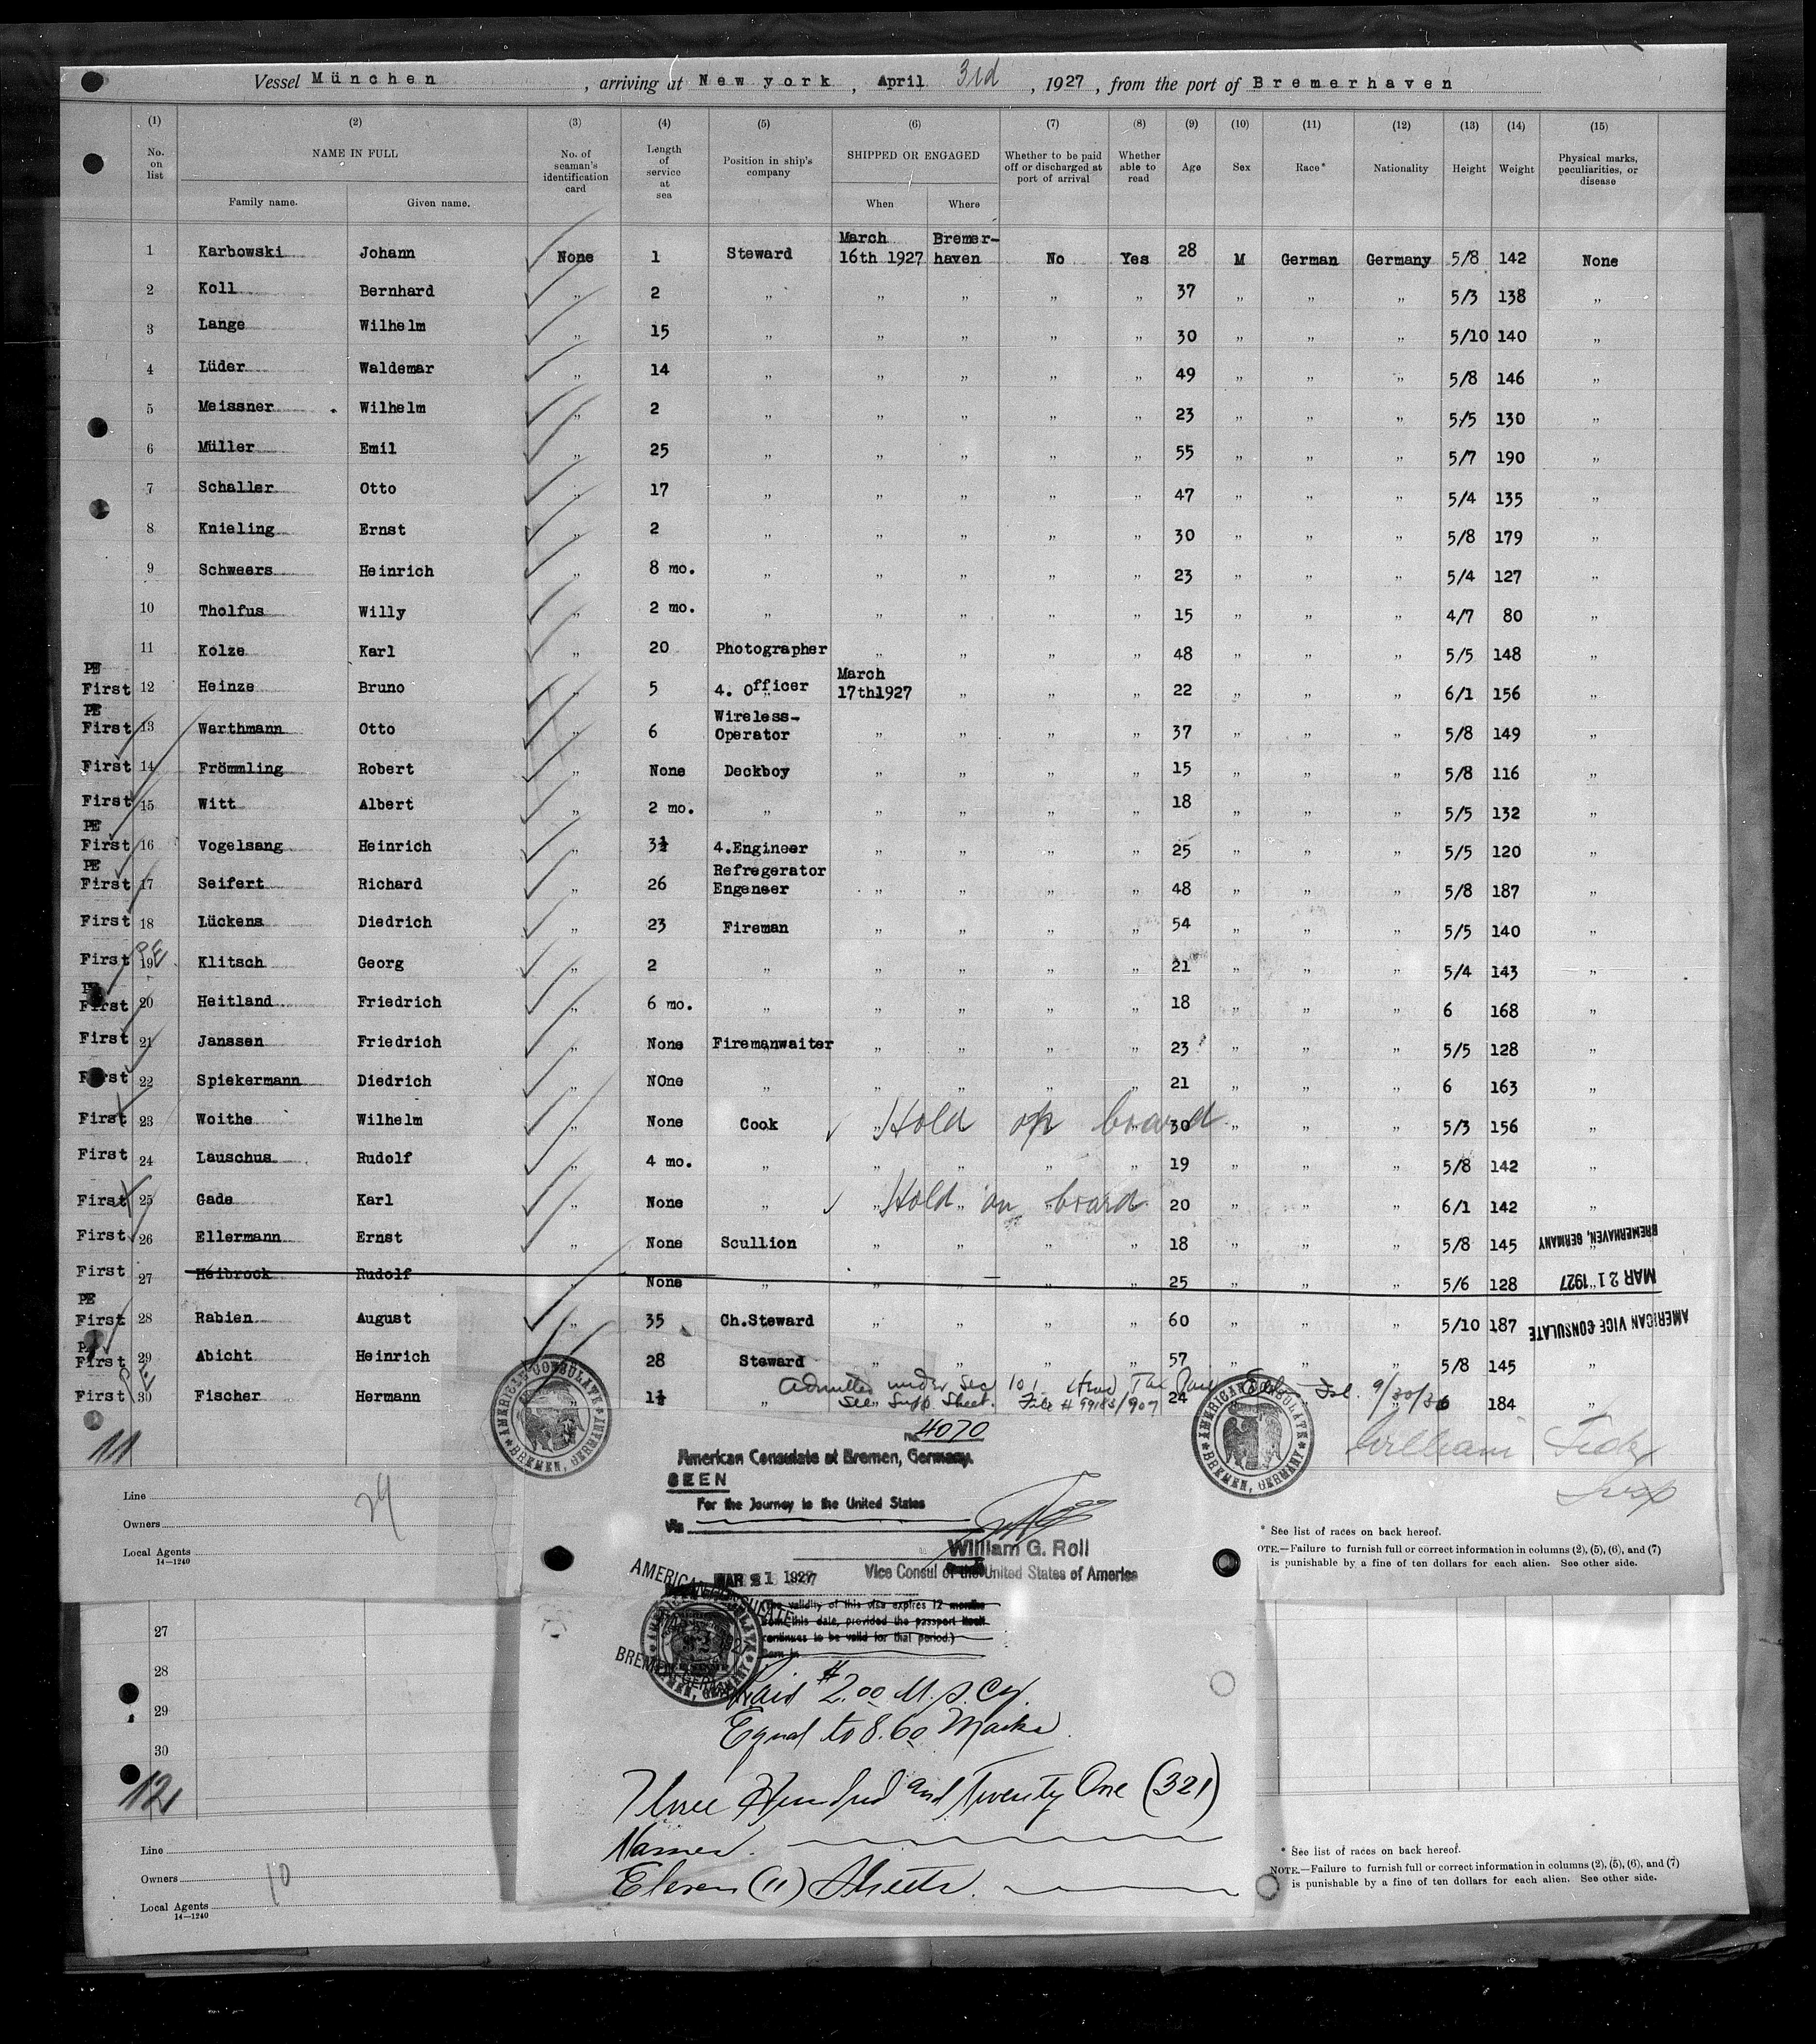 Vessel München, arriving at New york, April 3rd, 1927, from the port of Bremerhaven
(1) (2) (3) (4) (5) (6) (7) (8) (9) (10) (11) (12) (13) (14) (15)
No. on list NAME IN FULL No. of seaman's identification card Length of service at sea Position in ship's company SHIPPED OR ENGAGED Whether to be paid off or discharged at port of arrival Whether able to read Age Sex Race* Nationality Height Weight Physical marks, peculiarities, or disease
Family name. Given name. When Where
1 Karbowski Johann None 1 Steward March 16th 1927 Bremer-haven No Yes 28 M German Germany 5/8 142 None
2 Koll Bernhard „ 2 „ „ „ „ „ 37 „ „ „ 5/3 138 „
3 Lange Wilhelm „ 15 „ „ „ „ „ 30 „ „ „ 5/10 140 „
4 Lüder Waldemar „ 14 „ „ „ „ „ 49 „ „ „ 5/8 146 „
5 Meissner Wilhelm „ 2 „ „ „ „ „ 23 „ „ „ 5/5 130 „
6 Müller Emil „ 25 „ „ „ „ „ 55 „ „ „ 5/7 190 „
7 Schaller Otto „ 17 „ „ „ „ „ 47 „ „ „ 5/4 135 „
8 Knieling Ernst „ 2 „ „ „ „ „ 30 „ „ „ 5/8 179 „
9 Schweers Heinrich „ 8 mo. „ „ „ „ „ 23 „ „ „ 5/4 127 „
10 Tholfus Willy „ 2 mo. „ „ „ „ „ 15 „ „ „ 4/7 80 „
11 Kolze Karl „ 20 Photographer „ „ „ „ 48 „ „ „ 5/5 148 „
PE First 12 Heinze Bruno „ 5 4. Officer March 17th1927 „ „ „ 22 „ „ „ 6/1 156 „
PE First 13 Warthmann Otto „ 6 Wireless-Operator „ „ „ „ 37 „ „ „ 5/8 149 „
First 14 Frömmling Robert „ None Deckboy „ „ „ „ 15 „ „ „ 5/8 116 „
First 15 Witt Albert „ 2 mo. „ „ „ „ „ 18 „ „ „ 5/5 132 „
PE First 16 Vogelsang Heinrich „ 3½ 4.Engineer „ „ „ „ 25 „ „ „ 5/5 120 „
PE First 17 Seifert Richard „ 26 Refregerator Engeneer „ „ „ „ 48 „ „ „ 5/8 187 „
First 18 Lückens Diedrich „ 23 Fireman „ „ „ „ 54 „ „ „ 5/5 140 „
First 19 PE Klitsch Georg „ 2 „ „ „ „ „ 21 „ „ „ 5/4 143 „
PE First 20 Heitland Friedrich „ 6 mo. „ „ „ „ „ 18 „ „ „ 6 168 „
First 21 Janssen Friedrich „ None Firemanwaiter „ „ „ „ 23 „ „ „ 5/5 128 „
First 22 Spiekermann Diedrich „ NOne „ „ „ „ „ 21 „ „ „ 6 163 „
First 23 Woithe Wilhelm „ None Cook „ Hold on board 30 „ „ „ 5/3 156 „
First 24 Lauschus Rudolf „ 4 mo. „ „ „ „ „ 19 „ „ „ 5/8 142 „
First 25 Gade Karl „ None „ „ Hold on board 20 „ „ „ 6/1 142 „
First 26 Ellermann Ernst „ None Scullion „ „ „ „ 18 „ „ „ 5/8 145 „
BREMERHAVEN, GERMANY
First 27 Heibrock Rudolf „ None „ „ „ „ „ 25 „ „ „ 5/6 128 „
MAR 21 1927
PE First 28 Rabien August „ 35 Ch.Steward „ „ „ „ 60 „ „ „ 5/10 187
AMERICAN VICE CONSULATE
First 29 Abicht Heinrich 28 Steward „ „ „ „ 57 „ „ „ 5/8 145 „
First 30 P.E. Fischer Hermann 1½ „ 24 6 184 „
Admitted under Sec 101 Head Tax 9/30/30
See Supp Sheet. File # 99183/907
11
AMERICAN CONSULATE BREMEN, GERMANY
AMERICAN CONSULATE BREMEN, GERMANY
No. 4070
American Consulate at Bremen, Germany.
SEEN
For the Journey to the United States
Via
William G. Roll
Vice Consul of the United States of America
MAR 21 1927
(The validity of this visa expires 12 months
from this date, provided the passport itself
continues to be valid for that period.)
Born in
AMERICAN CONSULATE
BREMEN, GERMANY
Paid $2.00 U.S. Cy.
Equal to 8.60 Marks
Three Hundred and Twenty One (321)
Names.
Eleven (11) Sheets.
William
Insp
Line
24
Owners
Local Agents
14—1240
* See list of races on back hereof.
OTE.—Failure to furnish full or correct information in columns (2), (5), (6), and (7)
is punishable by a fine of ten dollars for each alien. See other side.
27
28
29
30
12
Line
Owners
10
Local Agents
14—1240
* See list of races on back hereof.
NOTE.—Failure to furnish full or correct information in columns (2), (5), (6), and (7)
is punishable by a fine of ten dollars for each alien. See other side.